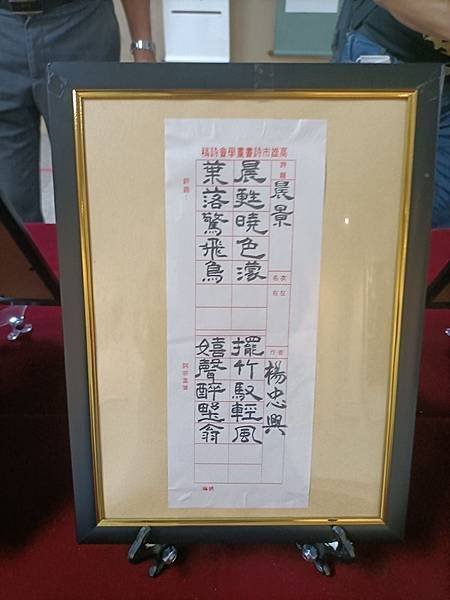 高雄市詩書畫學會詩稿
詩題
晨景
名次
作者
楊忠興
晨甦曉色濛
擺竹馭輕風
葉落驚飛鳥
嬉聲醉墅翁
評語：
編號